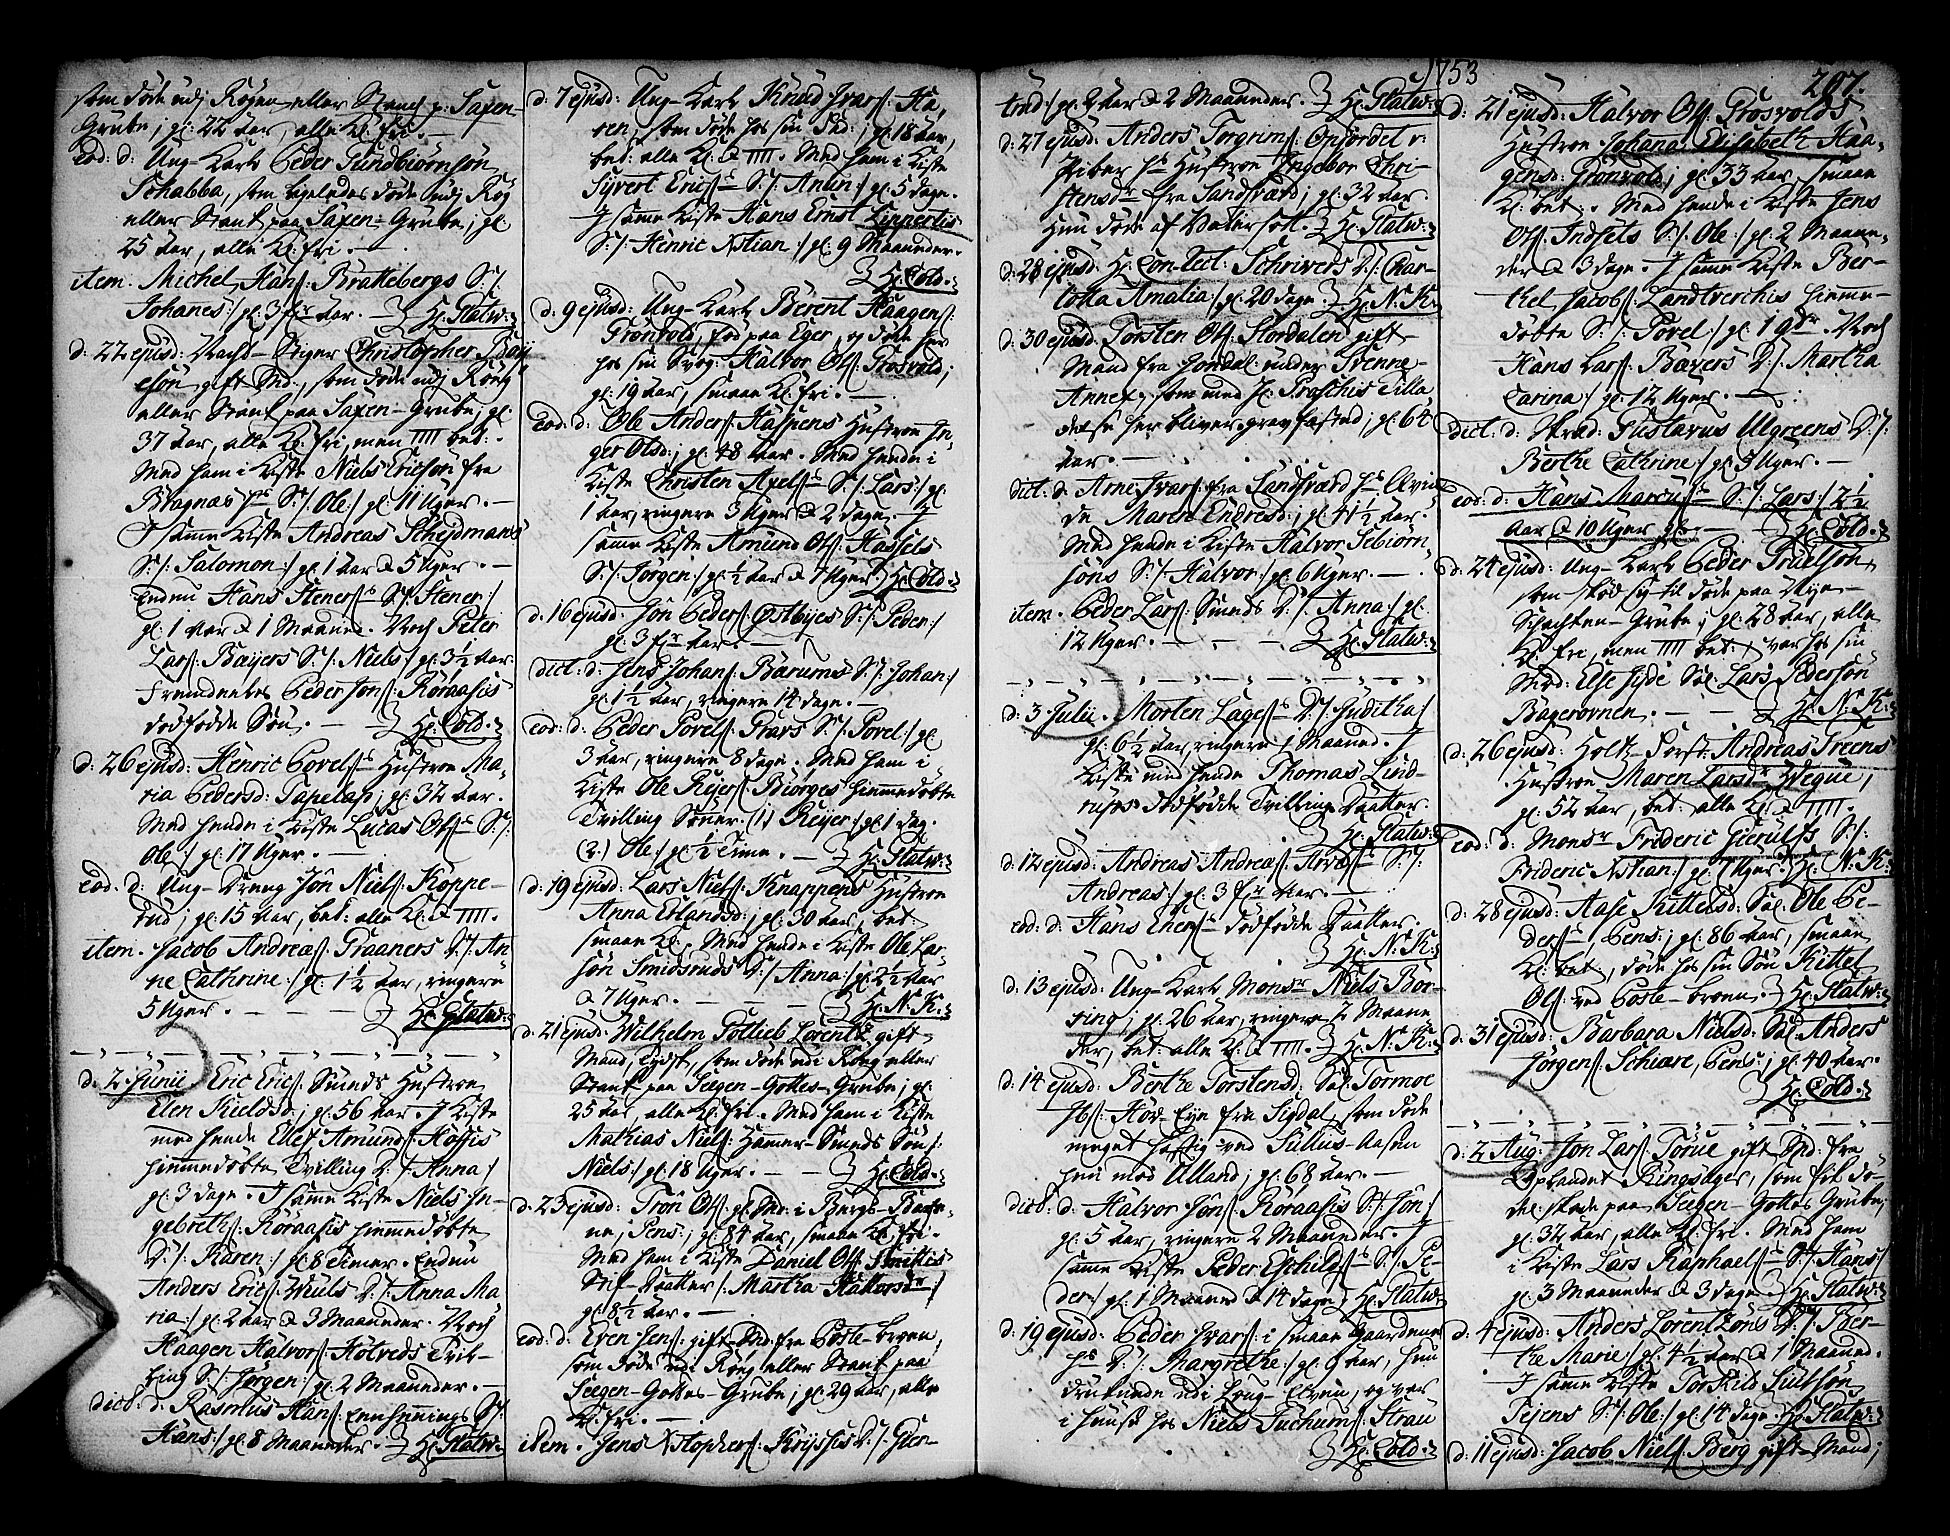 som døde udj Røgen eller Stanck p: Saxen-
Grube; gl: 22 aar, alle Kl: fri. —
eod: d: Ung-Karl Peder Gundbiørnsøn
Schabba, som ligeledes døde udj Røg
eller Stank paa Saxen-Grube; gl:
25 aar, alle Kl: fri. —
item. Michel Hans: Brattebergs S:/:
Johanes:/ gl: 3 fj: aar. — Hr: Statw:
d: 22 ejusd: Vacht-Stiger Christopher Boy
esøn gift Md:, som døde udj Røeg
eller Stank paa Saxen-Grube; gl:
37 aar, alle Kl: fri, men IIII bet:.
Med ham i Kiste Niels Ericsøn fra
Bragnæs hs S:/: Ole:/ gl: 11 Uger. —
I samme Kiste Andreas Scheydmans
S:/: Salomon:/ gl: 1 aar & 5 Uger. —
Endnu Hans Steners: S:/: Stener:/
gl: 1 aar & 1 Maaned. Noch Peter
Lars: Bæyers S:/: Niels:/ gl: 3½ aar.
Fremdeeles Peder Jons: Røraasis
dødfødde Søn. — Hr: Cold.
d: 26 ejusd: Henric Povels: Hustroe Ma-
ria Pedersd: Tapelas; gl: 32 aar.
Med hende i Kiste Lucas Ols: S:/:
Ole:/ gl: 17 Uger. —
eod: d: Ung-Dreng Jøn Niels: Koppe-
rud; gl: 15 aar, bet: alle Kl: & IIII.
item. Jacob Andreas: Graaners D:/: An-
ne Cathrine:/ gl: 1½ aar, ringere
5 Uger. — Hr: Statw:
d: 2 Junii Eric Erics: Smeds Hustroe
Elen Kieldsd:; gl: 56 aar. I Kiste
med hende Ellef Amunds: Kossis
hiemmedøbte Tvilling D:/: Anna:/
gl: 3 dage. I samme Kiste Niels In-
gebreths: Røraasis hiemmedøbte
D:/: Karen:/ gl: 8 Timer. Endnu
Anders Erics: Weuls D:/: Anna Ma
ria:/ gl: 2 aar & 3 Maaneder. Noch
Haagen Halvors: Hotveds Tvil-
ling S:/: Jørgen:/ gl: 2 Maaneder. —
dict: d: Rasmus Hans: S:/:
Hans:/ gl: 8 Maaneder. Hr: Statw:
d: 7 ejusd: Ung-Karl Knud Ivars: Ha,
ren, som døde hos sin Fad:; gl: 18 aar,
bet: alle Kl: & IIII. Med ham i Kiste
Syvert Erics: S:/: Anun:/ gl: 5 dage.
I samme Kiste Hans Ernst Linnertis
S:/: Henric Xstian:/ gl: 9 Maaneder.
Hr: Cold.
d: 9 ejusd: Ung-Karl Berent Haagens:
Grønvold, fød paa Eger, og døde her
hos sin Svog: Halvor Ols: Grosvold;
gl: 19 aar, smaae Kl: fri. —
eod: d: Ole Anders: Haspens Hustroe In-
ger Olsd:; gl: 48 aar. Med hende i
Kiste Christen Axels: S:/: Lars:/ gl:
1 aar, ringere 3 Uger & 2 dage. I
samme Kiste Amund Ols: Hassels
S:/: Jørgen:/ gl: ½ aar & 7 Uger. Hr: Cold.
d: 16 ejusd: Jøn Peders: Østbyes S:/: Peder:/
gl: 3 fj: aar. —
dict: d: Jens Johans: Bærums S:/: Johan:/
gl: 1½ aar, ringere 14 dage. —
eod: d: Peder Povels: Prars S:/: Povel:/ gl:
3 aar, ringere 8 dage. Med ham i
Kiste Ole Reyers: Biørges hiemmedøbte
Tvilling Sønner. (1) Reyer:/ gl: 1 dag.
(2.) Ole:/ gl: ½ Time. — Hr: Statw:
d: 19 ejusd: Lars Niels: Knappens Hustroe
Anna Erlandsd:; gl: 30 aar, bet:
smaae Kl:. Med hende i Kiste Ole Lar-
søn Smidsruds D:/: Anna:/ gl: 2½ aar
& 7 Uger. — Hr: N: K:
d: 21 ejusd: Wilhelm Gottlieb Lorentz gift
Mand, Tydsk, som døde udi Røeg eller
Stank paa Seegen-Gottes-Grube; gl:
25 aar, alle Kl: fri. Med ham i Kiste
Mathias Niels: Hamer-Smeds Søn:/:
Niels:/ gl: 18 Uger. — Hr: Cold.
d: 23 ejusd: Tron Ols: gl: Md: i Bergs-Bakke-
ne; Pens:; gl: 84 aar, smaae Kl: fri.
Med ham i Kiste Daniel Ols: Smithis
Stif-Daatter:/ Martha Halvorsdr:/
gl: 8½ aar. —
eod: d: Even Jens: gift Md: fra Poste-broen,
som døde udi Røeg eller Stank paa
Seegen-Gottes-Grube; gl: 29 aar, alle
Kl: fri. —
item. Jens Xstophers: Kryssis D:/: Ger-
1753
trud:/ gl: 2 aar & 2 Maaneder. Hr: Statw:
d: 27 ejusd: Anders Torgrims: Opfordet v:
Piber hs Hustroe Ingebor Chri-
stensdr fra Sandsværd; gl: 32 aar.
Hun døde af Watersott. Hr: Statw:
d: 28 ejusd: Hr: Con-Rect: Schrivers D:/: Char-
lotta Amalia:/ gl: 20 dage. Hr: N: K:
d: 30 ejusd: Torsten Ols: Stordalen gift
Mand fra Jondal under Svenne-
Annex, som med Hr: Proschis Tilla
delse her bliver grav fæsted; gl: 64
aar. —
dict: d: Arne Ivars: fra Sandsværd hs Qvin
de Maren Endresd:; gl: 41½ aar.
Med hende i Kiste Halvor Sebiørn-
søns S:/: Halvor:/ gl: 6 Uger. —
item. Peder Lars: Smeds D:/: Anna:/ gl:
12 Uger. — Hr: Statw:
d: 3 Julii. Morten Lages: D:/: Juditha:/
gl: 6½ aar, ringere 1 Maaned. I
Kiste med hende Thomas Lind-
ruses dødfødde Tvilling Daatter.
Hr: Statw:
d: 12 ejusd: Andreas Andreas: S:/:
Andreas:/ gl: 3 fj: aar. —
eod: d: Hans Eners: dødfødde Daatter.
Hr: N: K:
d: 13 ejusd: Ung-Karl Monsr Niels Bor-
ring; gl: 26 aar, ringere 2 Maane
der, bet: alle Kl: & IIII. Hr: N: K:
d: 14 ejusd: Berthe Torstensd: Sal: Tormoe
Jbs: Hov-Eje fra Sigdal, som døde
meget hastig ved Julius-Aasen
hun med Ulland; gl: 68 aar. —
dict: d: Halvor Jøns: Røraasis S:/: Jøn:/
gl: 5 aar, ringere 2 Maaneder. I
samme Kiste Peder Eschilds: S:/: Pe-
der:/ gl: 1 Maaned & 14 dage. Hr: Statw:
d: 19 ejusd: Peder Ivars: i smaae Gaardene
hs D:/: Margrethe:/ gl: 9 aar, hun
druknede udi Loug-Elven, og var
i Huus hos Niels Tuchum: Strau
Hr: Cold.
207.
d: 21 ejusd: Halvor Ols: Grosvolds
Hustroe Johana Elisabeth Haa-
gensd: Grønvold; gl: 33 aar, smaae
Kl: bet:. Med hende i Kiste Jens
Ols: Indsets S:/: Ole:/ gl: 2 Maane-
der & 3 dage. I samme Kiste Ber-
thel Jacobs: Landtverchis hiemme-
døbte S:/: Povel:/ gl: 1 qdr. Noch
Hans Lars: Bæyers D:/: Martha
Carina:/ gl: 12 Uger. —
dict: d: Gustavus Ulgreens D:/:
Berthe Cathrine:/ gl: 5 Uger. —
eod: d: Hans Marcus: S:/: Lars:/ 2½
aar & 10 Uger gl: — Hr: Cold.
d: 24 ejusd: Ung-Karl Peder Truelsøn
som skød sig til døde paa Nye-
Schachten-Grube; gl: 28 aar, alle
Kl: fri, men IIII bet: var hos sin
Mod: Else Syde Sal: Lars Pedersøn
Bagerovnen. — Hr: N: K:
d: 26 ejusd: Holtz-Først: Andreas Treens
Hustroe Maren Larsdr Hvegue;
gl: 52 aar, bet: alle Kl: & IIII.
eod: d: Monsr Frideric Gierulfs S:/:
Frideric Xstian:/ gl: 7 Uger. Hr: N: K:
d: 28 ejusd: Aase Kittelsd: Sal: Ole Pe-
ders:, Pens:; gl: 86 aar, smaae
Kl: bet:, døde hos sin Søn Kittel
Ols: ved Poste-broen. Hr: Statw:
d: 31 ejusd: Barbara Nielsd: Sal: Anders
Jørgens: Schiære, Pens:; gl: 40 aar.
Hr: Cold.
d: 2 Aug: Jon Lars: Torue gift Md: fra
Oplandet Ringsager, som fik dø-
del skade paa Seegen-Gottes Grube;
gl: 32 aar, alle Kl: fri. Med ham
i Kiste Lars Raphaels: S:/: Hans:/
gl: 3 Maaneder & 3 dage. Hr: Statw:
d: 4 ejusd: Anders Lorentzøns D:/: Ber-
the Marie:/ gl: 4½ aar & 1 Maaned.
I samme Kiste Torkild Juulsøn
Tejens S:/: Ole:/ gl: 14 dage. Hr: Statw:
d: 11 ejusd: Jacob Niels: Berg gifte Mand;